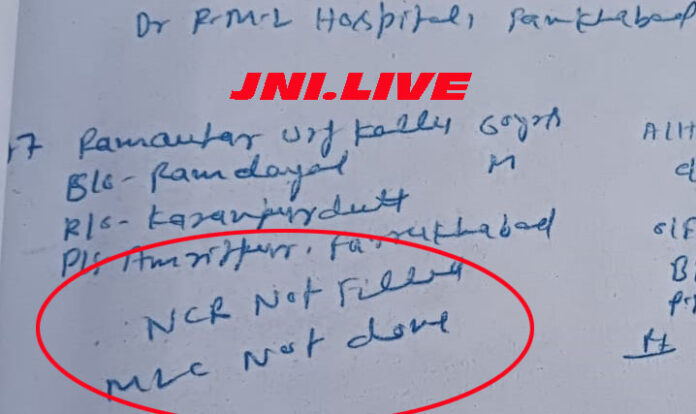 Dr R.M.L Hospital, Farrukhabad
JNI.LIVE
17 Ramautar urf Kallu 60yrs
S/o- Ramdayal M
R/o- Karanpurdutt
P/s Amritpur. Farrukhabad
NCR Not Filled
MLC Not done